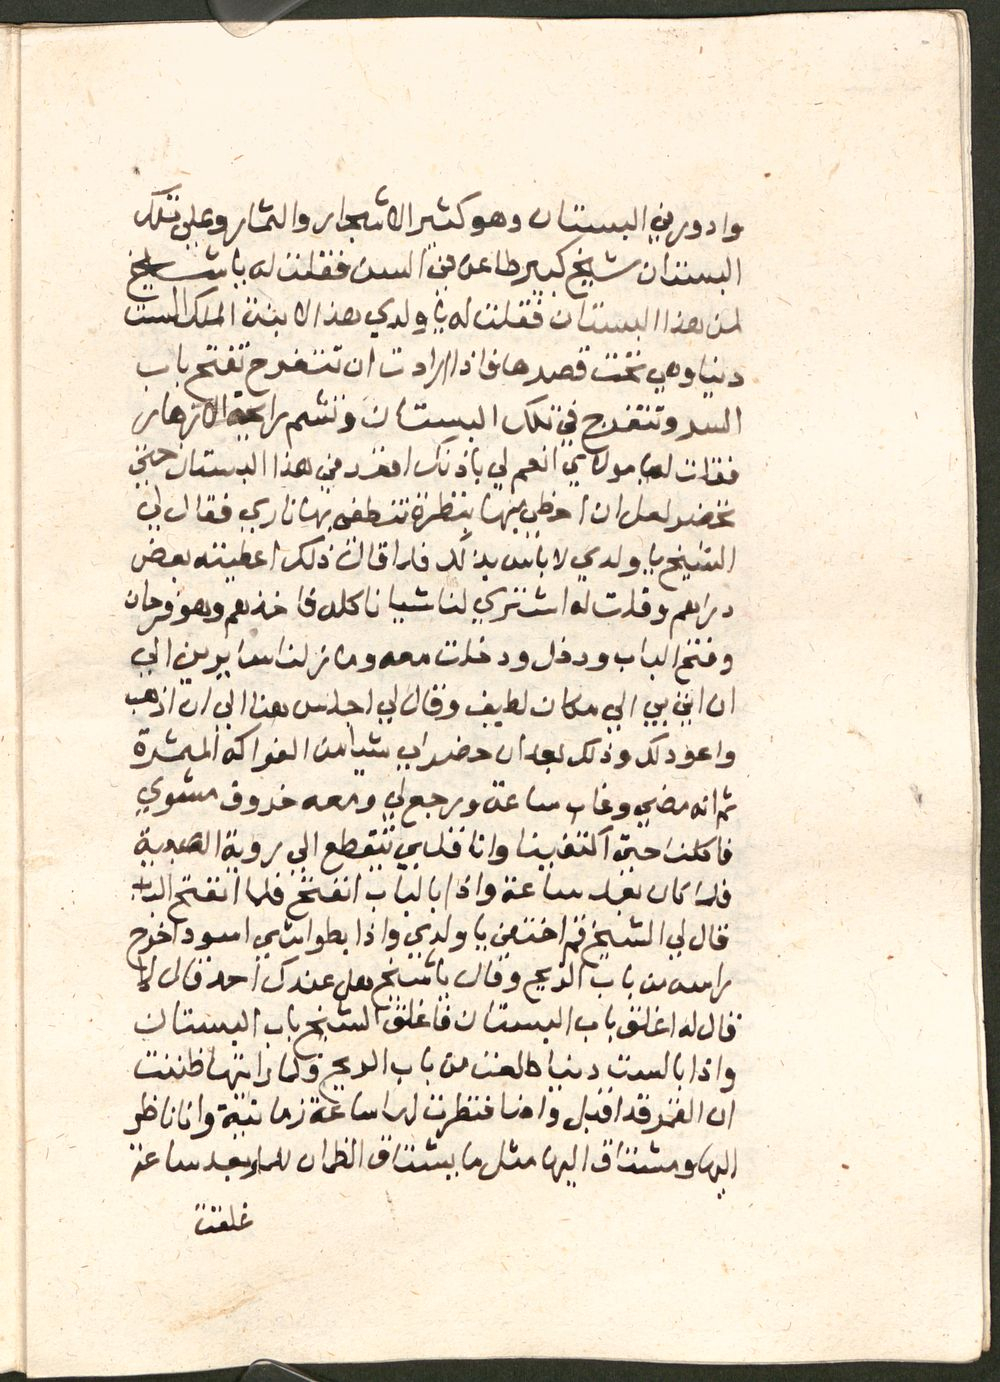 وادور في البستان وهو كثير الاشجار والثمار وعلي تلك
البستان شيخ كبير طاعن في السن فقلت له يا شيخ
لمن هذا البستان فقلت له يا ولدي هذا لابنت الملك الست
دنيا وهي تحت قصرها فاذا ارادت ان تتفرج تفتح باب
السر وتتفرج في تلك البستان وتشم رايحة الازهار
فقلت له يا مولاي انعم لي باذنك اقعد في هذا البستان حتي
تحضر لعل ان احظي منها بنظرة تنطفي بها ناري فقال لي
الشيخ يا ولدي لا باس بذلك فلما قال ذلك اعطيته بعض
دراهم وقلت له اشتري لنا شيا ناكله فاخذهم وهو فرحان
وفتح الباب ودخل ودخلت معه وما زلنا سايرين الي
ان اتي بي الي مكان لطيف وقال لي اجلس هنا الي ان اذهب
واعود لك وذلك بعد ان حضر لي شيا من الفواكه المثمرة
ثم انه مضي وغاب ساعة ورجع لي ومعه خروف مشوي
فاكلنا حتي اكتفينا وانا قلبي يتقطع الي روية الصبية
فلما كان بعد ساعة واذا بالباب انفتح فلما انفتح الباب
قال لي الشيخ قم اختفي يا ولدي واذا بطواشي اسود اخرج
راسه من باب الزيج وقال يا شيخ هل عندك احد قال لا
قال له اغلق باب البستان فاغلق الشيخ باب البستان
واذا بالست دنيا طلعت من باب الزيج ولما رايتها ظننت
ان القمر قد اقبل واضا فنظرت لها ساعة زمانية وانا ناظر
اليها ومشتاق اليها مثل ما يشتاق الظمان للماء وبعد ساعة
غلقت